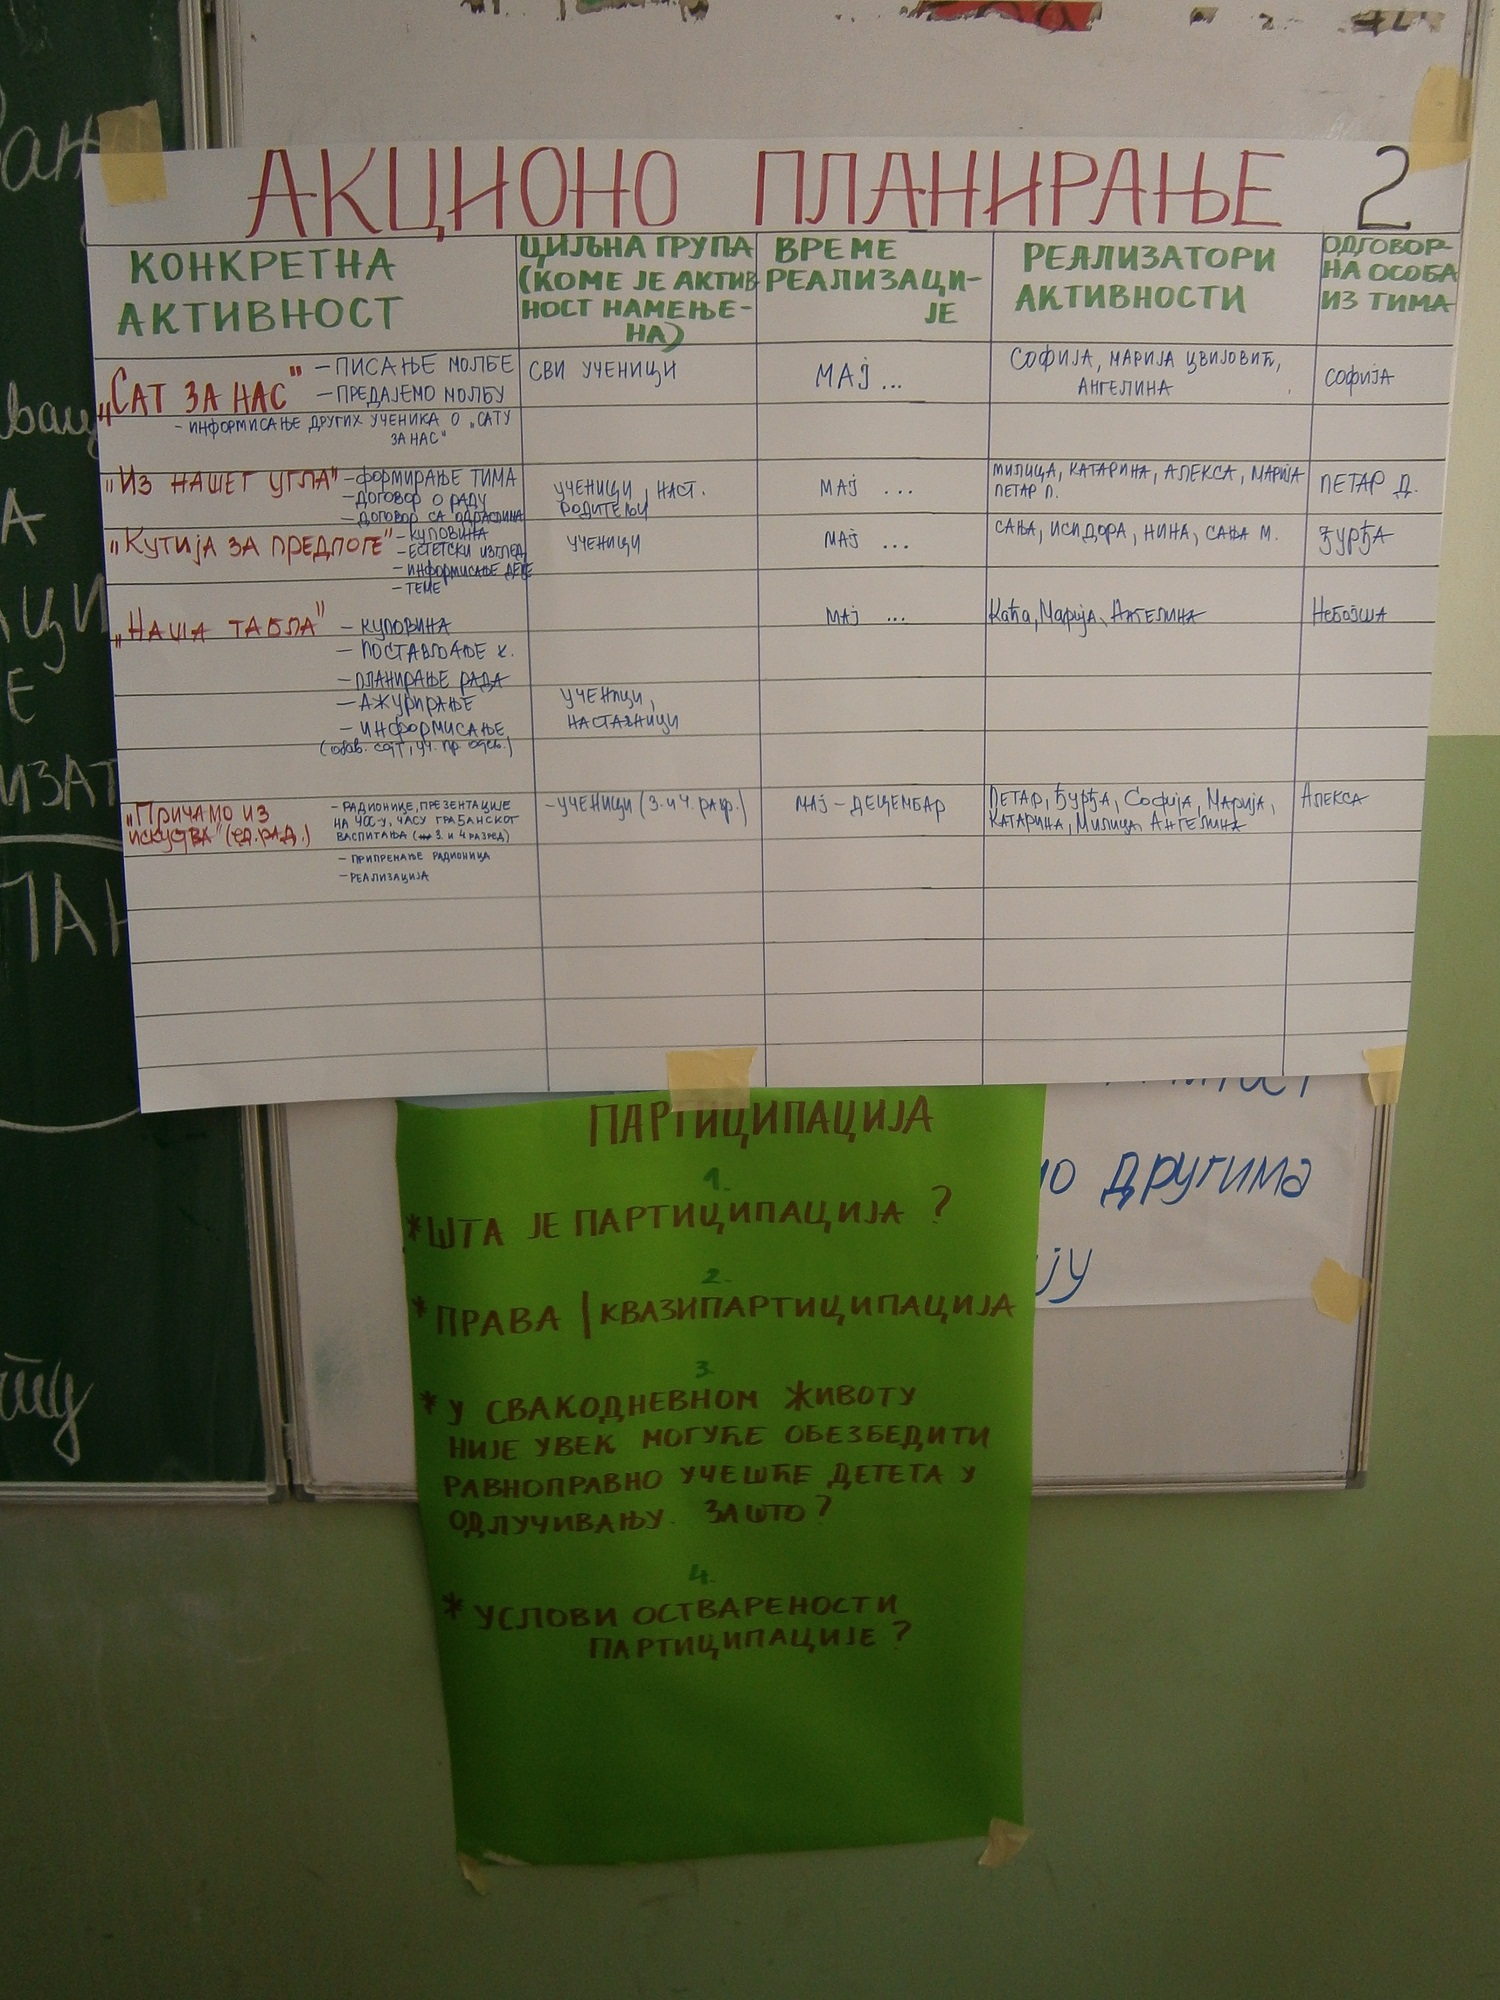 АКЦИОНО ПЛАНИРАЊЕ 2
КОНКРЕТНА
АКТИВНОСТ
ЦИЉНА ГРУПА
(КОМЕ ЈЕ АКТИВ
НОСТ НАМЕЊЕ-
НА)
ВРЕМЕ
РЕАЛИЗАЦИ-
ЈЕ
РЕАЛИЗАТОРИ
АКТИВНОСТИ
ОДГОВОР-
НА ОСОБА
ИЗ ТИМА
„САТ ЗА НАС"
- ПИСАЊЕ МОЛБЕ
- ПРЕДАЈЕМО МОЛБУ
- ИНФОРМИСАЊЕ ДРУГИХ УЧЕНИКА О „САТУ
ЗА НАС"
СВИ УЧЕНИЦИ
МАЈ ...
СОФИЈА, МАРИЈА ЦВИЈОВИЋ,
АНГЕЛИНА
СОФИЈА
„ИЗ НАШЕГ УГЛА"
- ФОРМИРАЊЕ ТИМА
- ДОГОВОР О РАДУ
- ДОГОВОР СА ОДРАСЛИМА
УЧЕНИЦИ, НАСТ.
РОДИТЕЉИ
МАЈ ...
МИЛИЦА, КАТАРИНА, АЛЕКСА, МАРИЈА
ПЕТАР П.
ПЕТАР Д.
„КУТИЈА ЗА ПРЕДЛОГЕ"
- КУПОВИНА
- ЕСТЕТСКИ ИЗГЛЕД
- ИНФОРМИСАЊЕ ДЕЦЕ
- ТЕМЕ
УЧЕНИЦИ
МАЈ ...
САЊА, ИСИДОРА, НИНА, САЊА М.
ЂУРЂА
„НАША ТАБЛА"
- КУПОВИНА
- ПОСТАВЉАЊЕ К.
- ПЛАНИРАЊЕ РАДА
- АЖУРИРАЊЕ
- ИНФОРМИСАЊЕ
УЧЕНИЦИ,
НАСТАВНИЦИ
МАЈ ...
Каћа, Марија, АНГЕЛИНА
НЕБОЈША
„ПРИЧАМО ИЗ
ИСКУСТВА" (ЕД. РАД.)
- РАДИОНИЦЕ, ПРЕЗЕНТАЦИЈЕ
НА ЧОС-У, ЧАСУ ГРАЂАНСКОГ
ВАСПИТАЊА (3. И 4 РАЗРЕД)
- ПРИПРЕМАЊЕ РАДИОНИЦА
- РЕАЛИЗАЦИЈА
- УЧЕНИЦИ (3. И 4. РАЗР.)
МАЈ - ДЕЦЕМБАР
ПЕТАР, ЂУРЂА, СОФИЈА, МАРИЈА,
КАТАРИНА, МИЛИЦА, АНГЕЛИНА
АЛЕКСА
ПАРТИЦИПАЦИЈА
1.
* ШТА ЈЕ ПАРТИЦИПАЦИЈА ?
2.
* ПРАВА | КВАЗИПАРТИЦИПАЦИЈА
3.
* У СВАКОДНЕВНОМ ЖИВОТУ
НИЈЕ УВЕК МОГУЋЕ ОБЕЗБЕДИТИ
РАВНОПРАВНО УЧЕШЋЕ ДЕТЕТА У
ОДЛУЧИВАЊУ. ЗАШТО?
4.
* УСЛОВИ ОСТВАРЕНОСТИ
ПАРТИЦИПАЦИЈЕ ?
другима